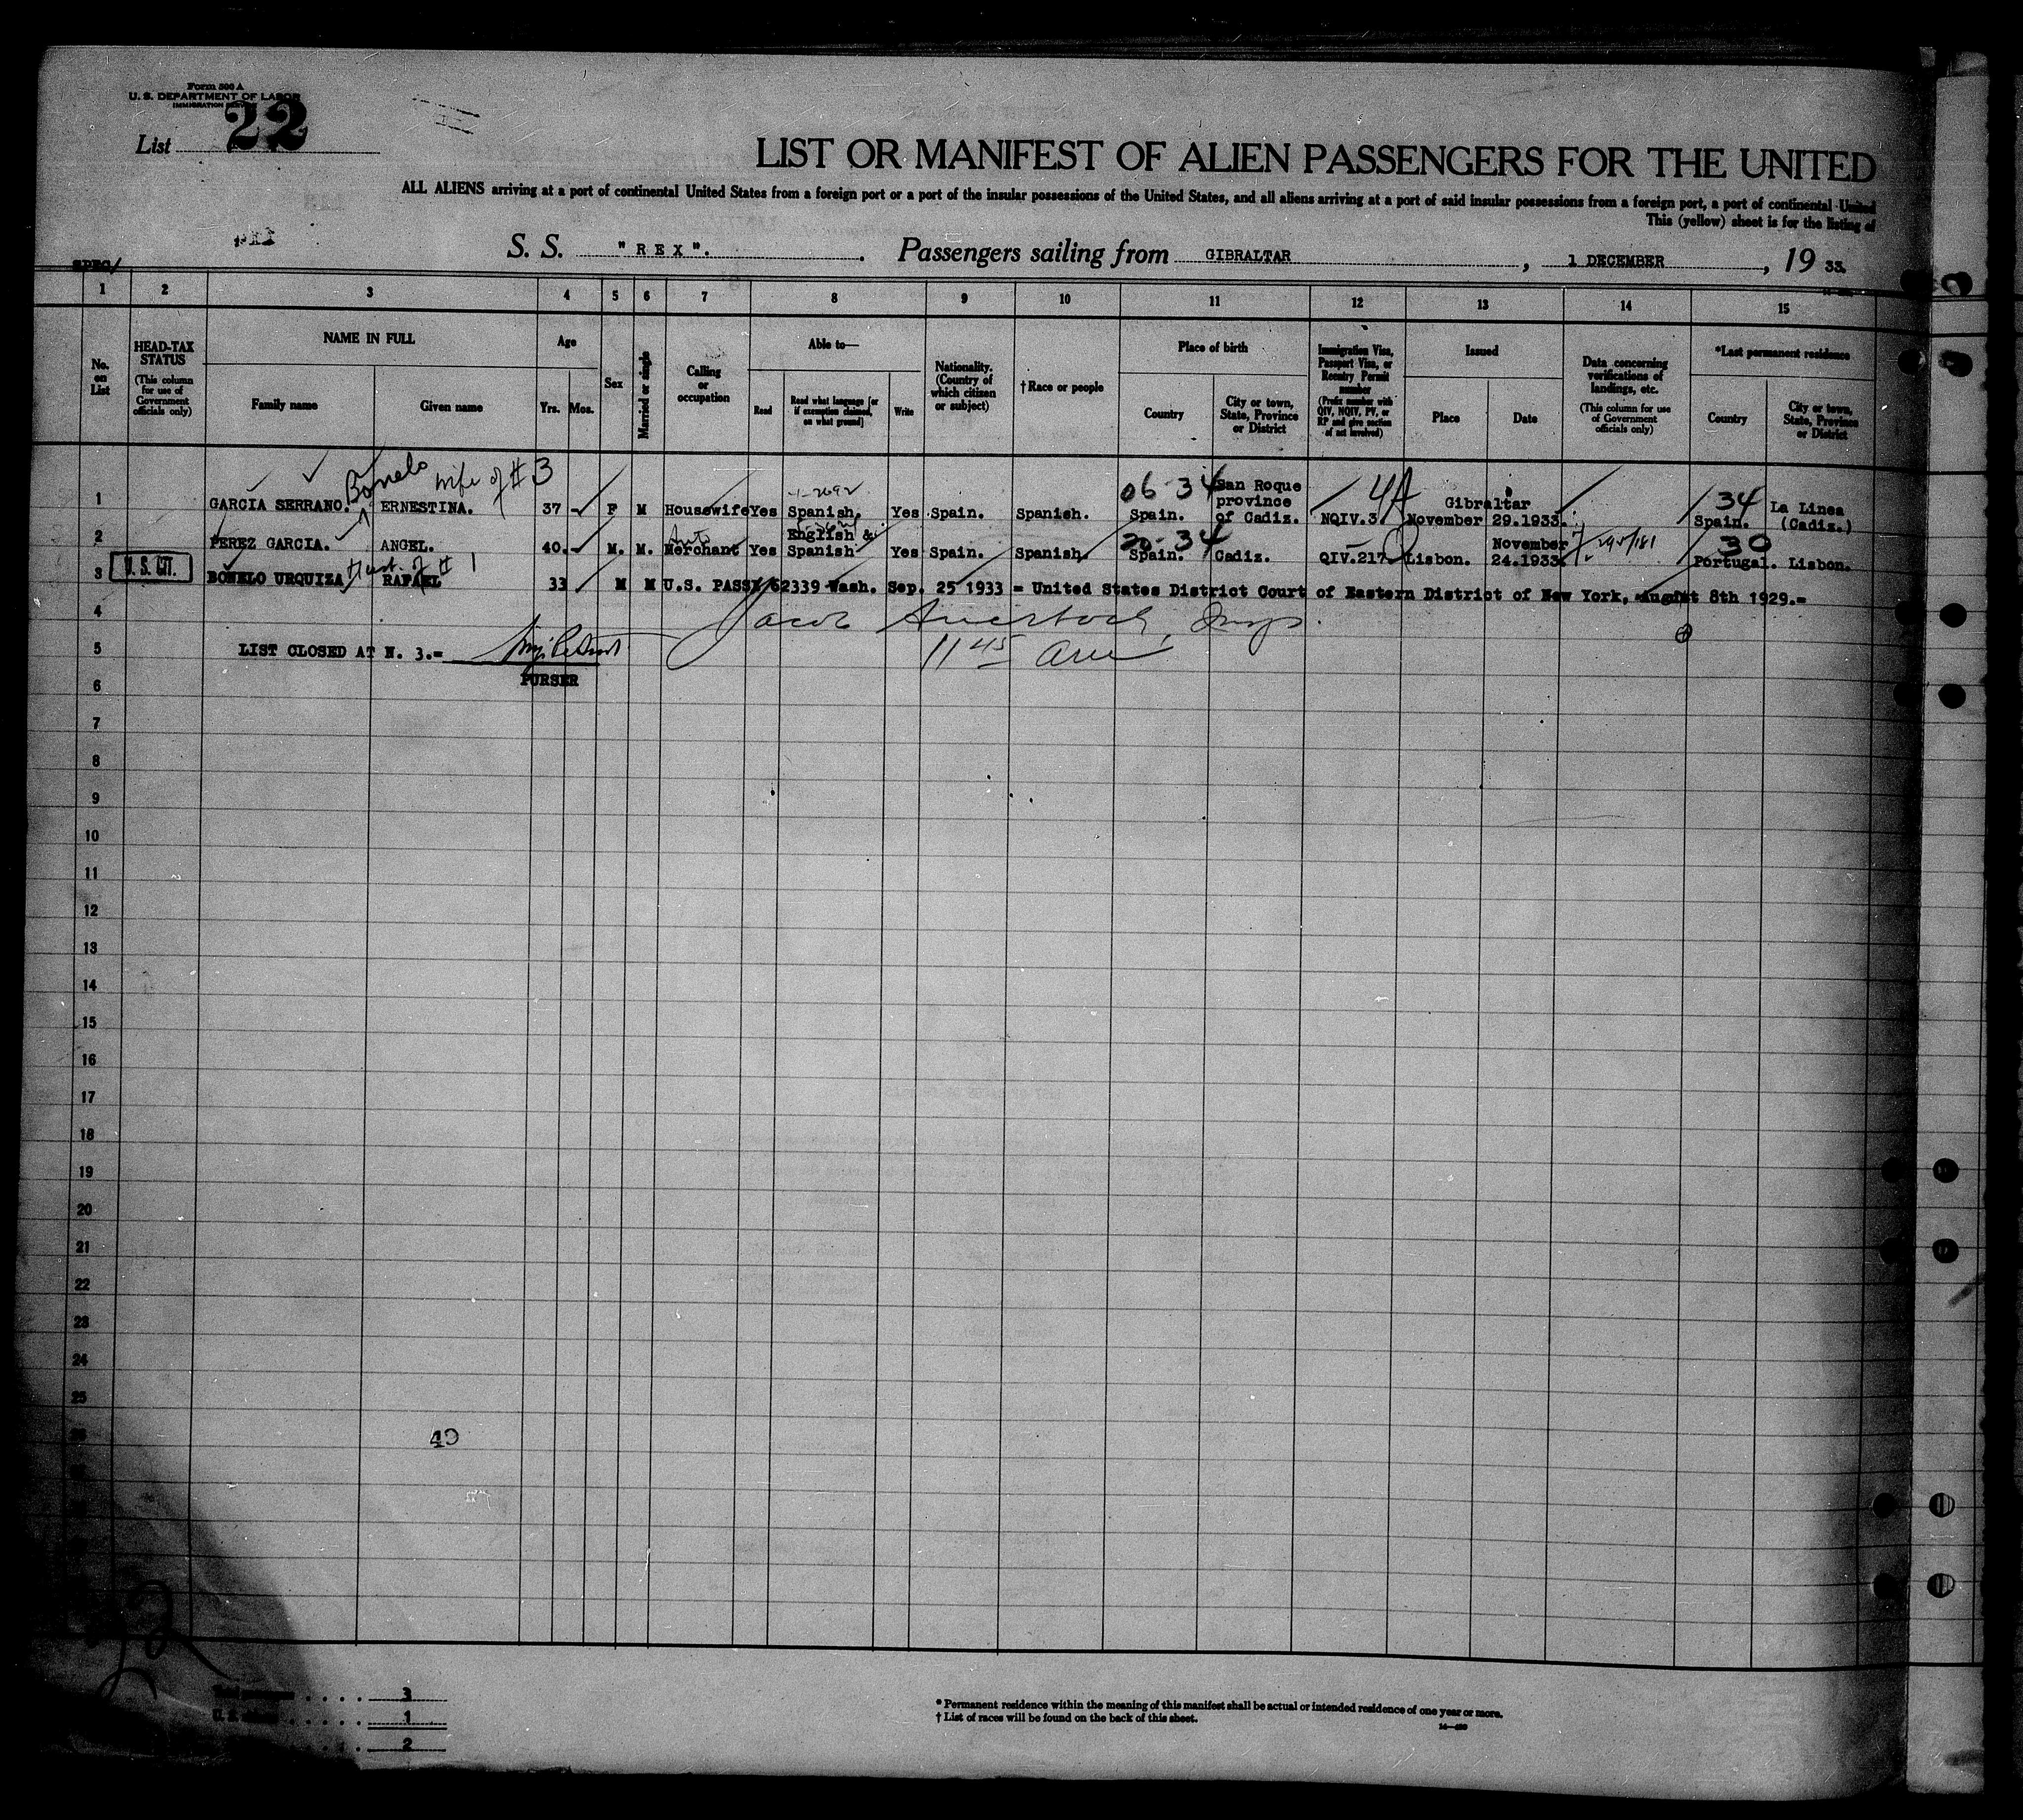 Form 500 A
U. S. DEPARTMENT OF LABOR
IMMIGRATION
List 22
LIST OR MANIFEST OF ALIEN PASSENGERS FOR THE UNITED
ALL ALIENS arriving at a port of continental United States from a foreign port or a port of the insular possessions of the United States, and all aliens arriving at a port of said insular possessions from a foreign port, a port of continental United
This (yellow) sheet is for the listing of
S. S. "REX". Passengers sailing from GIBRALTAR, 1 DECEMBER, 19 33.
1 2 3 4 5 6 7 8 9 10 11 12 13 14 15
No. on List
HEAD-TAX STATUS
(This column for use of Government officials only)
NAME IN FULL
Family name Given name
Age
Yrs. Mos.
Sex
Married or single
Calling or occupation
Able to—
Read
Read what language [or if exemption claimed, on what ground]
Write
Nationality. (Country of which citizen or subject)
†Race or people
Place of birth
Country
City or town, State, Province or District
Immigration Visa, Passport Visa, or Reentry Permit number
(Prefix number with QIV, NQIV, PV, or RP and give section of act involved)
Issued
Place Date
Data concerning verifications of landings, etc.
(This column for use of Government officials only)
*Last permanent residence
Country
City or town, State, Province or District
Bonelo wife of #3
1 GARCIA SERRANO. ERNESTINA. 37 - F M Housewife Yes Spanish. Yes Spain. Spanish. 06-34 Spain. San Roque province of Cadiz. 4A NQIV.3 Gibraltar November 29.1933. 34 Spain. La Linea (Cadiz.)
2 PEREZ GARCIA. ANGEL. 40.- M. M. Auto Merchant Yes English & Spanish Yes Spain. Spanish. 20-34 Spain. Cadiz. QIV-217 Lisbon. November 24.1933. 30 Portugal. Lisbon.
U. S. CIT.
Husb. of #1
3 BONELO URQUIZA RAFAEL 33 M M U.S. PASS. 62339 Wash. Sep. 25 1933 = United States District Court of Eastern District of New York, August 8th 1929.=
4
Jacob Auerbach, Insp.
5 LIST CLOSED AT N. 3.=
11 45 am
PURSER
6
7
8
9
10
11
12
13
14
15
16
17
18
19
20
21
22
23
24
25
40
3
1
2
* Permanent residence within the meaning of this manifest shall be actual or intended residence of one year or more.
† List of races will be found on the back of this sheet.